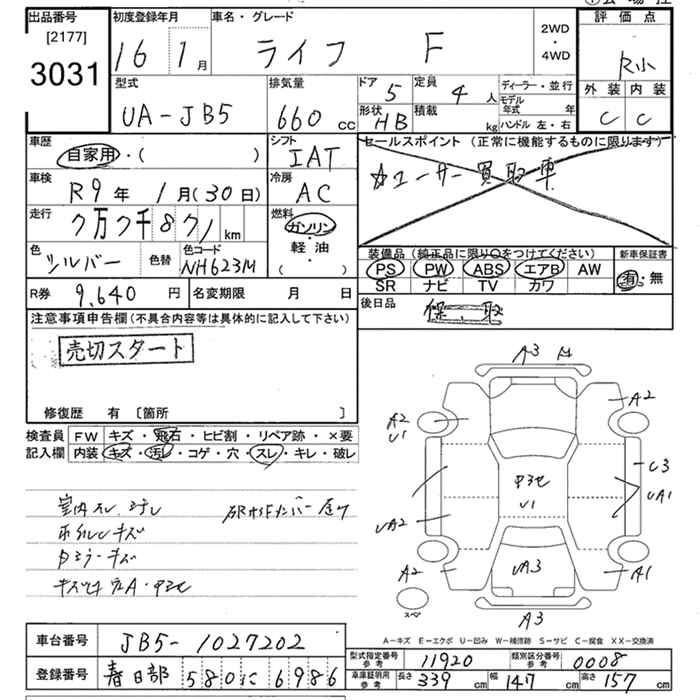 出品番号
[2177]
3031
初度登録年月
16 1月
車名・グレード
ライフ F
2WD
・
4WD
評価点
R小
外装 内装
C C
型式
UA-JB5
排気量
660 cc
ドア 5
定員 4 人
形状 HB
積載 kg
ディーラー・並行
モデル年式 年
ハンドル 左・右
車歴
自家用・( )
シフト
IAT
車検
R9年 1月(30日)
冷房
AC
走行
km
燃料
ガソリン
・
軽・油
・
( )
色
シルバー
色替
色コード
NH623M
セールスポイント (正常に機能するものに限ります)
☆ユーザー買取車
装備品 (純正品に限り○をつけてください)
PS PW ABS エアB AW
SR ナビ TV カワ
新車保証書
有・無
R券 9,640円
名変期限 月 日
後日品
注意事項申告欄(不具合内容等は具体的に記入して下さい)
売切スタート
修復歴 有 [箇所 ]
検査員記入欄
FW キズ・飛石・ヒビ割・リペア跡・×要
内装 キズ・汚レ・コゲ・穴・スレ・キレ・破レ
A3
A2
A2
U1
U3
UA1
U1
UA2
UA3
A2
A1
A3
スペア
A-キズ E-エクボ U-凹み W-補修跡 S-サビ C-腐食 XX-交換済
車台番号 JB5-1027202
登録番号 春日部 580に6986
型式指定番号参考 11920
類別区分番号参考 0008
車庫証明用参考 長さ 339 cm 幅 147 cm 高さ 157 cm